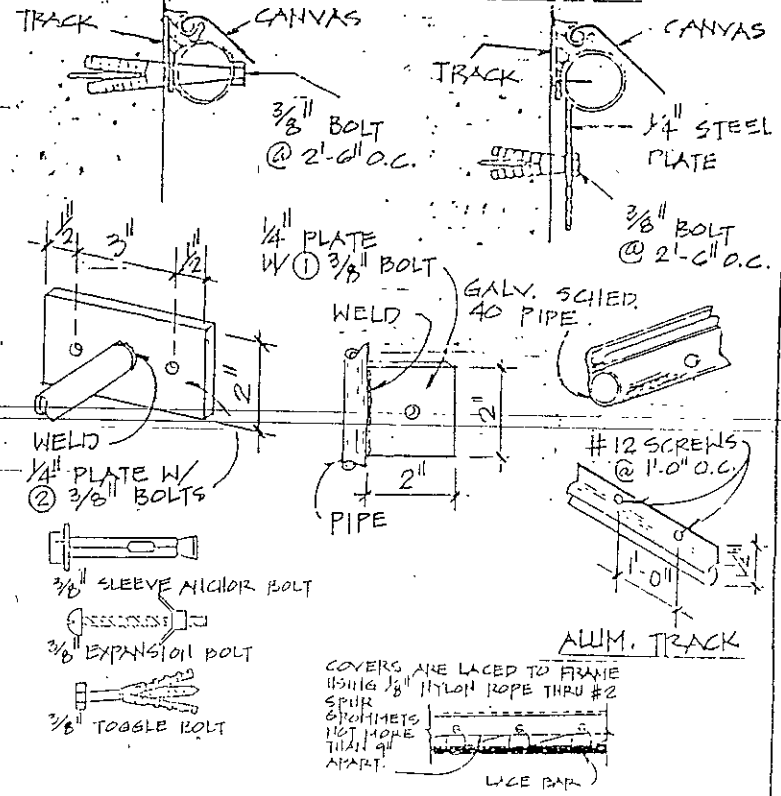 TRACK
CANVAS
3/8" BOLT
@ 2'-6" O.C.
CANVAS
TRACK
1/4" STEEL
PLATE
3/8" BOLT
@ 2'-6" O.C.
1/2"
3"
1/2"
2"
WELD
1/4" PLATE W/
② 3/8" BOLTS
1/4" PLATE
W/ ① 3/8" BOLT
WELD
2"
2"
PIPE
GALV. SCHED.
40 PIPE
#12 SCREWS
@ 1'-0" O.C.
1'-0"
ALUM. TRACK
3/8" SLEEVE ANCHOR BOLT
3/8" EXPANSION BOLT
3/8" TOGGLE BOLT
COVERS ARE LACED TO FRAME
USING 1/8" NYLON ROPE THRU #2
SPUR
GROMMETS
NOT MORE
THAN 9"
APART.
LACE BAR